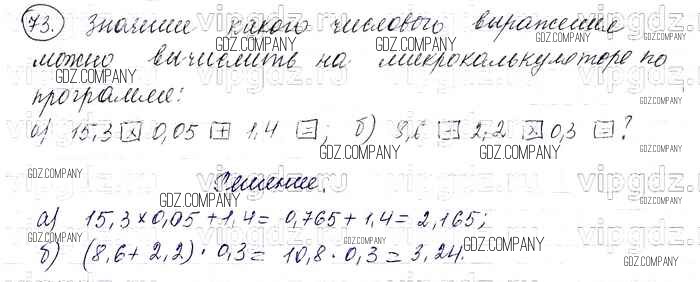 73. Значение какого числового выражения
можно вычислить на микрокалькуляторе по
программе:
а) 15,3 × 0,05 + 1,4 = ; б) 8,6 + 2,2 × 0,3 = ?
Решение.
а) 15,3×0,05+1,4 = 0,765+1,4 = 2,165;
б) (8,6+2,2)·0,3 = 10,8·0,3 = 3,24.